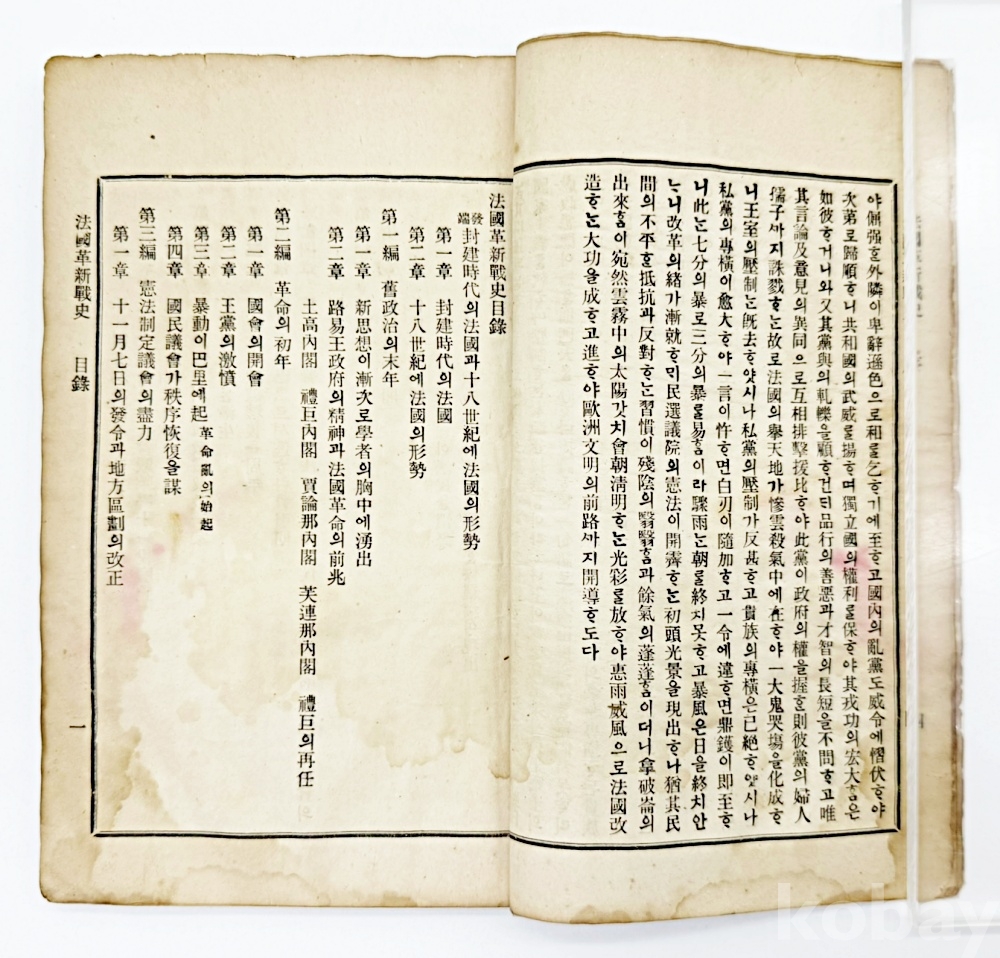 야倔强ᄒᆞᆫ外隣이卑辭遜色으로和를乞ᄒᆞ기에至ᄒᆞ고國內의亂黨도威令에慴伏ᄒᆞ야
次第로歸順ᄒᆞ니共和國의武威를揚ᄒᆞ며獨立國의權利를保ᄒᆞ야其戎功의宏大ᄒᆞᆷ은
如彼ᄒᆞ거니와又其黨與의軋轢을顧ᄒᆞ건ᄃᆡ品行의善惡과才智의長短을不問ᄒᆞ고唯
其言論及意見의異同으로互相排擊援比ᄒᆞ야此黨이政府의權을握ᄒᆞᆫ則彼黨의婦人
孺子ᄭᆞ지誅戮ᄒᆞᄂᆞᆫ故로法國의擧天地가慘雲殺氣中에在ᄒᆞ야一大鬼哭場을化成ᄒᆞ
니王室의壓制ᄂᆞᆫ旣去ᄒᆞ얏시나私黨의壓制가反甚ᄒᆞ고貴族의專橫은已絶ᄒᆞ얏시나
私黨의專橫이愈大ᄒᆞ야一言이忤ᄒᆞ면白刃이隨加ᄒᆞ고一令에違ᄒᆞ면鼎鑊이即至ᄒᆞ
니此ᄂᆞᆫ七分의暴로三分의暴를易ᄒᆞᆷ이라驟雨ᄂᆞᆫ朝를終치못ᄒᆞ고暴風은日을終치안
ᄂᆞ니改革의緒가漸就ᄒᆞᄆᆡ民選議院의憲法이開霽ᄒᆞᄂᆞᆫ初頭光景을現出ᄒᆞ나猶其民
間의不平ᄒᆞᆫ抵抗과反對ᄒᆞᄂᆞᆫ習慣이殘陰의翳翳ᄒᆞᆷ과餘氣의蓬蓬ᄒᆞᆷ이더니拿破崙의
出來ᄒᆞᆷ이宛然雲霧中의太陽갓치會朝淸明ᄒᆞᄂᆞᆫ光彩를放ᄒᆞ야惠雨威風으로法國改
造ᄒᆞᄂᆞᆫ大功을成ᄒᆞ고進ᄒᆞ야歐洲文明의前路ᄭᆞ지開導ᄒᆞ도다
法國革新戰史目錄
發端 封建時代의法國과十八世紀에法國의形勢
第一章 封建時代의法國
第二章 十八世紀에法國의形勢
第一編 舊政治의末年
第一章 新思想이漸次로學者의胸中에湧出
第二章 路易王政府의精神과法國革命의前兆
土高內閣 禮巨內閣 賈論那內閣 芙連那內閣 禮巨의再任
第二編 革命의初年
第一章 國會의開會
第二章 王黨의激憤
第三章 暴動이巴里에起 革命亂의始起
第四章 國民議會가秩序恢復을謀
第三編 憲法制定議會의盡力
第一章 十一月七日의發令과地方區劃의改正
法國革新戰史 目錄 一
kobay